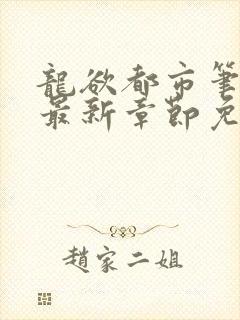 龍欲都市筆
最新章節免
趙家二姐